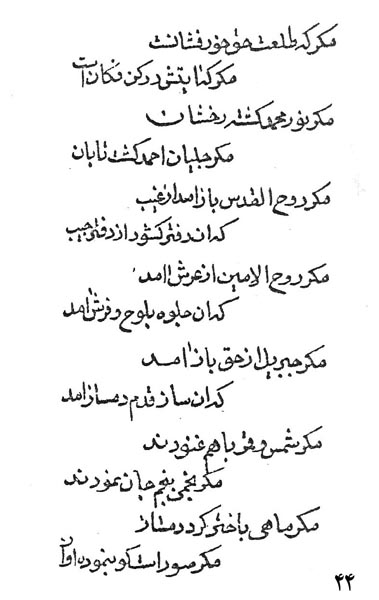 مکر که طلعت حق خور فشانست
مکر کتابتش در کن فکان است
مکر نور محمد کشته رخشان
مکر جلیان احمد کشت تابان
مکر روح القدس باز امد از غیب
که ان دفتر کشود از دفتر جیب
مکر روح الامین از عرش امد
که ان جلوه بلوح و فرش امد
مکر جبریل از حق باز امد
که ان ساز قدم دمساز امد
مکر شمس و قمر باهم غنودند
مکر نجمی بنجم جان نمودند
مکر ماهی باختر کرد
مکر صور است کو بنمود
۴۴